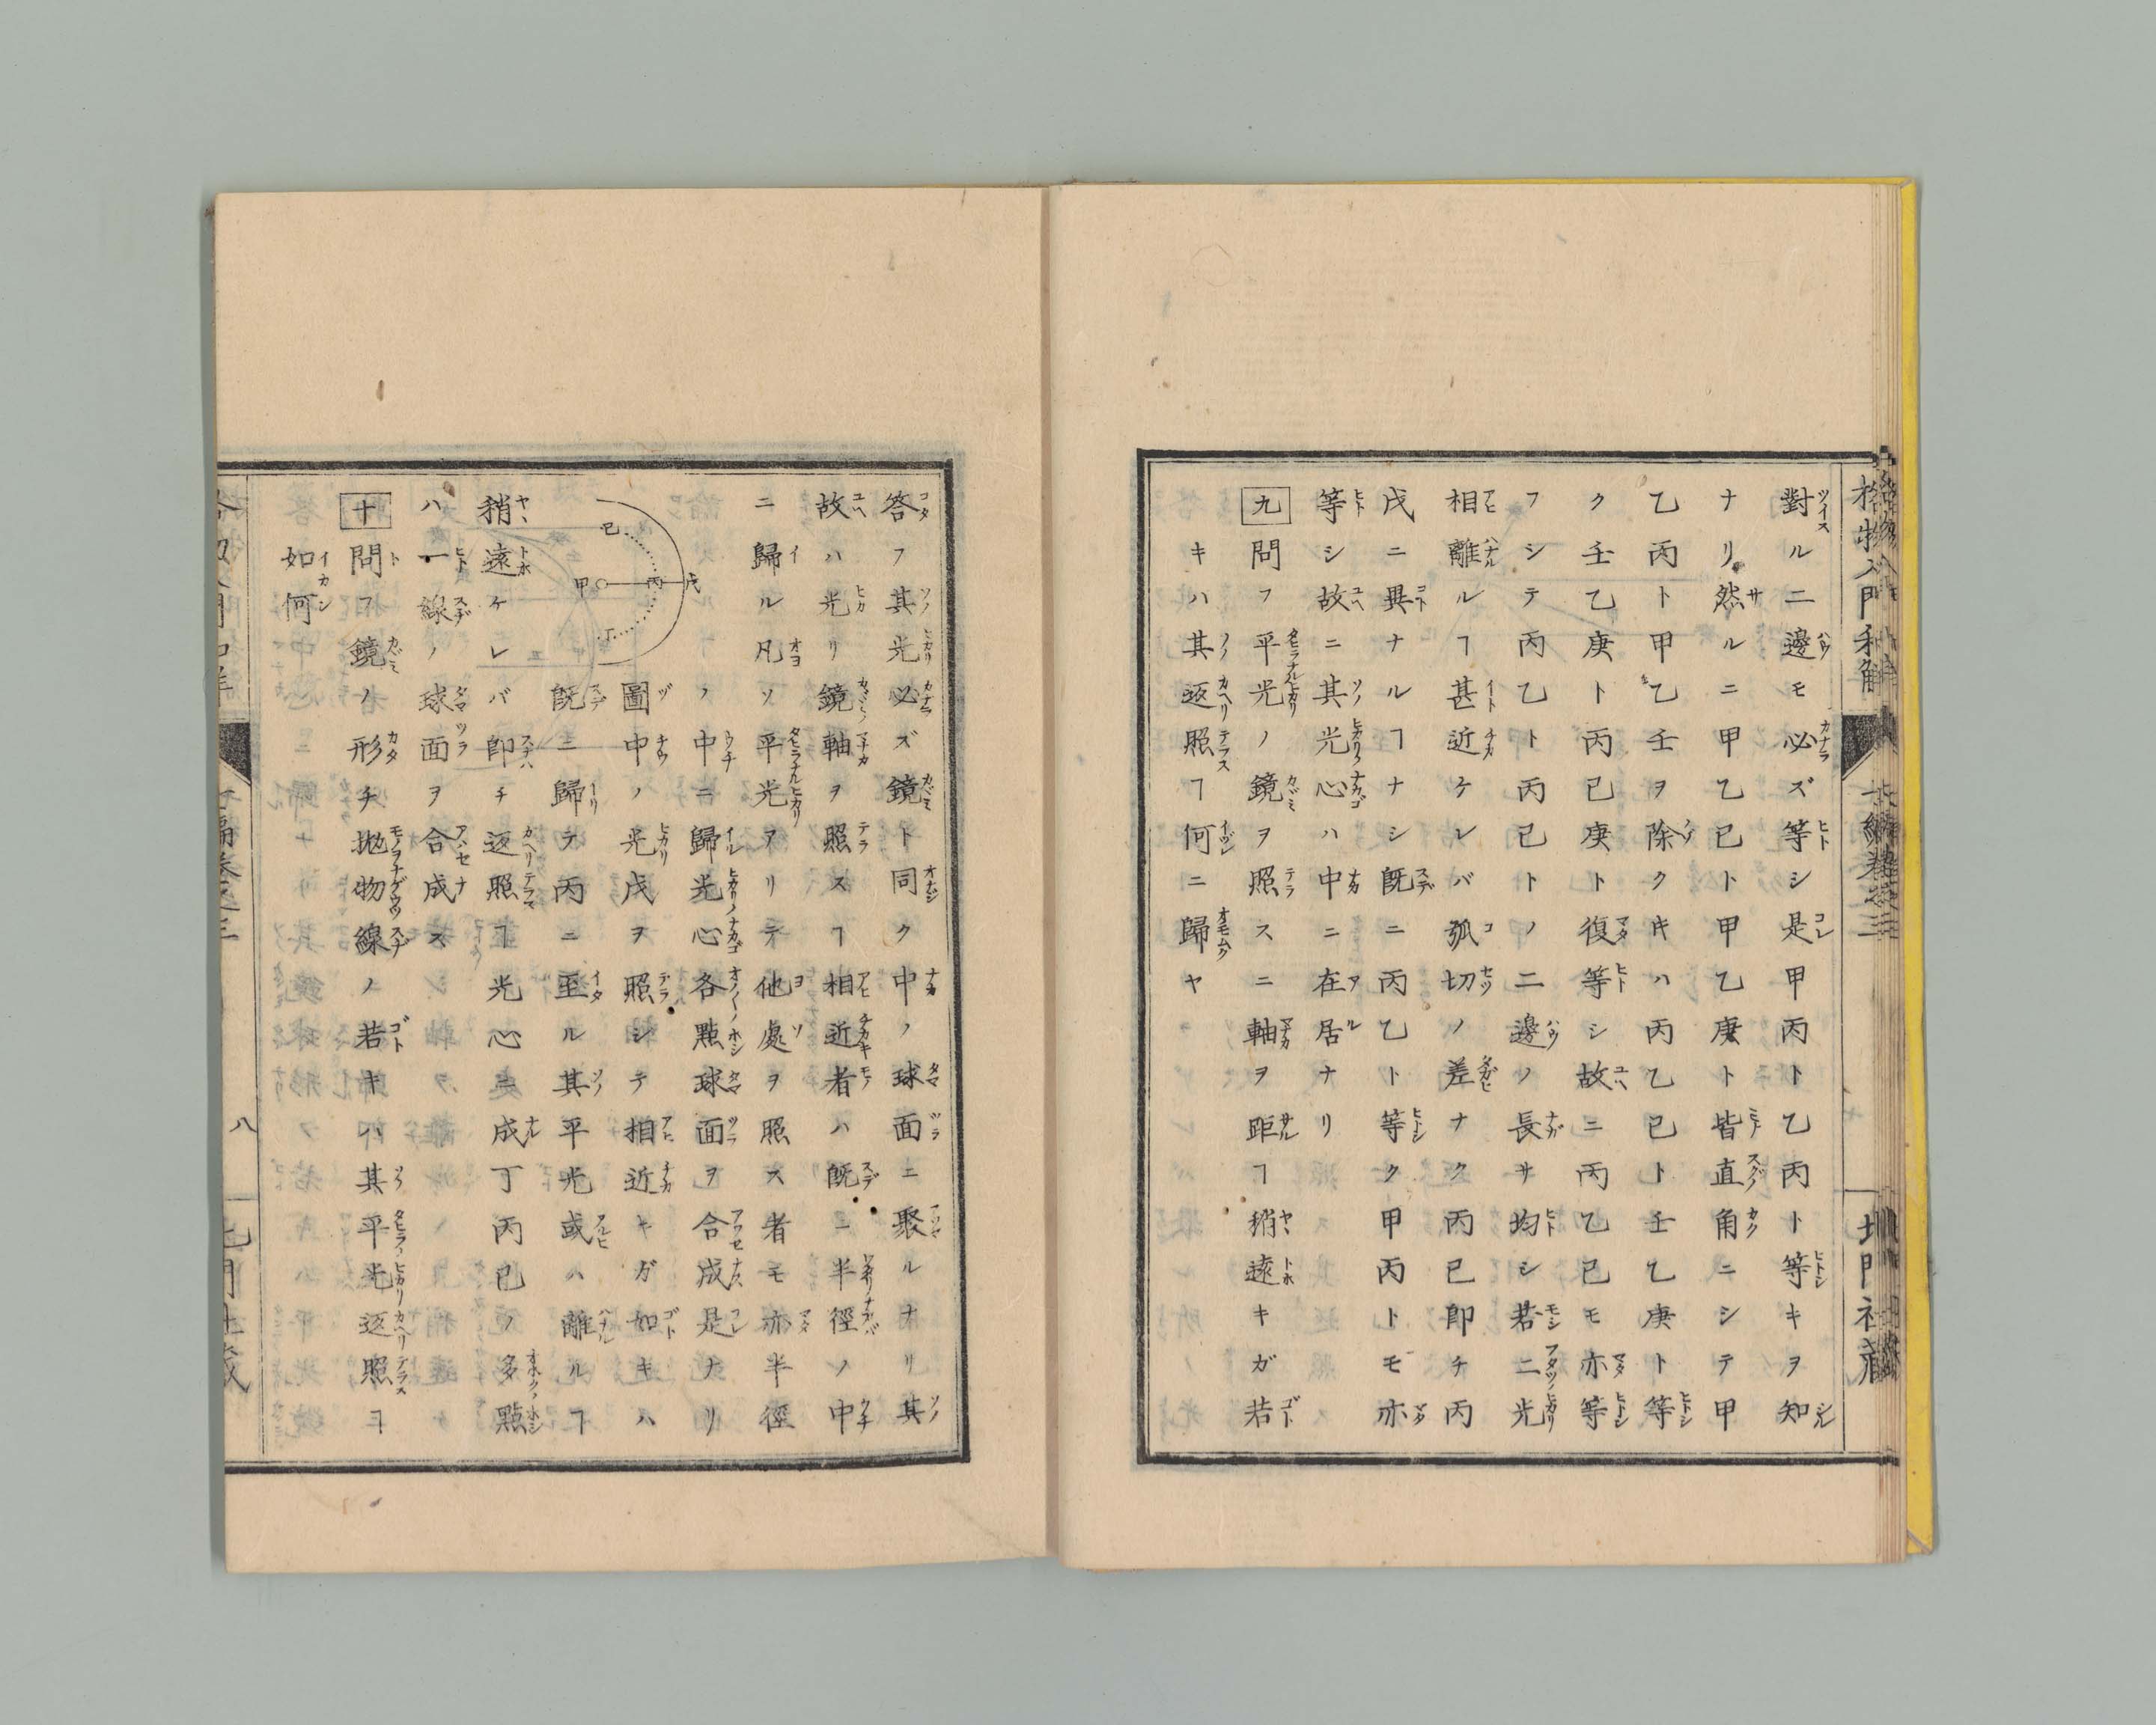 格物入門和解
北門社藏
對ルニ邊モ必ズ等シ是甲丙ト乙丙ト等キヲ知
ナリ然ルニ甲乙己ト甲乙庚ト皆直角ニシテ甲
乙丙ト甲乙壬ヲ除クキハ丙乙己ト壬乙庚ト等
ク壬乙庚ト丙己庚ト復等シ故ニ丙乙己モ亦等
フシテ丙乙ト丙己トノ二邊ノ長サ均シ若二光
相離ルヿ甚近ケレバ弧切ノ差ナク丙己即チ丙
戊ニ異ナルヿナシ既ニ丙乙ト等ク甲丙トモ亦
等シ故ニ其光心ハ中ニ在居ナリ
九 問フ平光ノ鏡ヲ照スニ軸ヲ距ヿ稍遠キガ若
キハ其返照ヿ何ニ歸ヤ
答フ其光必ズ鏡ト同ク中ノ球面ニ聚ルナリ其
故ハ光リ鏡軸ヲ照スヿ相近者ハ既ニ半徑ノ中
ニ歸ル凡ソ平光アリテ他處ヲ照ス者モ亦半徑
ノ中ニ歸光心各點球面ヲ合成是ナリ
圖中ノ光戊ヲ照シテ相近キガ如キハ
既ニ歸テ丙ニ至ル其平光或ハ離ルヿ
戊
丙
甲
己
丁
稍遠ケレバ即チ返照ヿ光心與成丁丙己ノ多點
ハ一線ノ球面ヲ合成ス
十 問フ鏡ノ形チ拋物線ノ若キハ其平光返照ヿ
如何
八